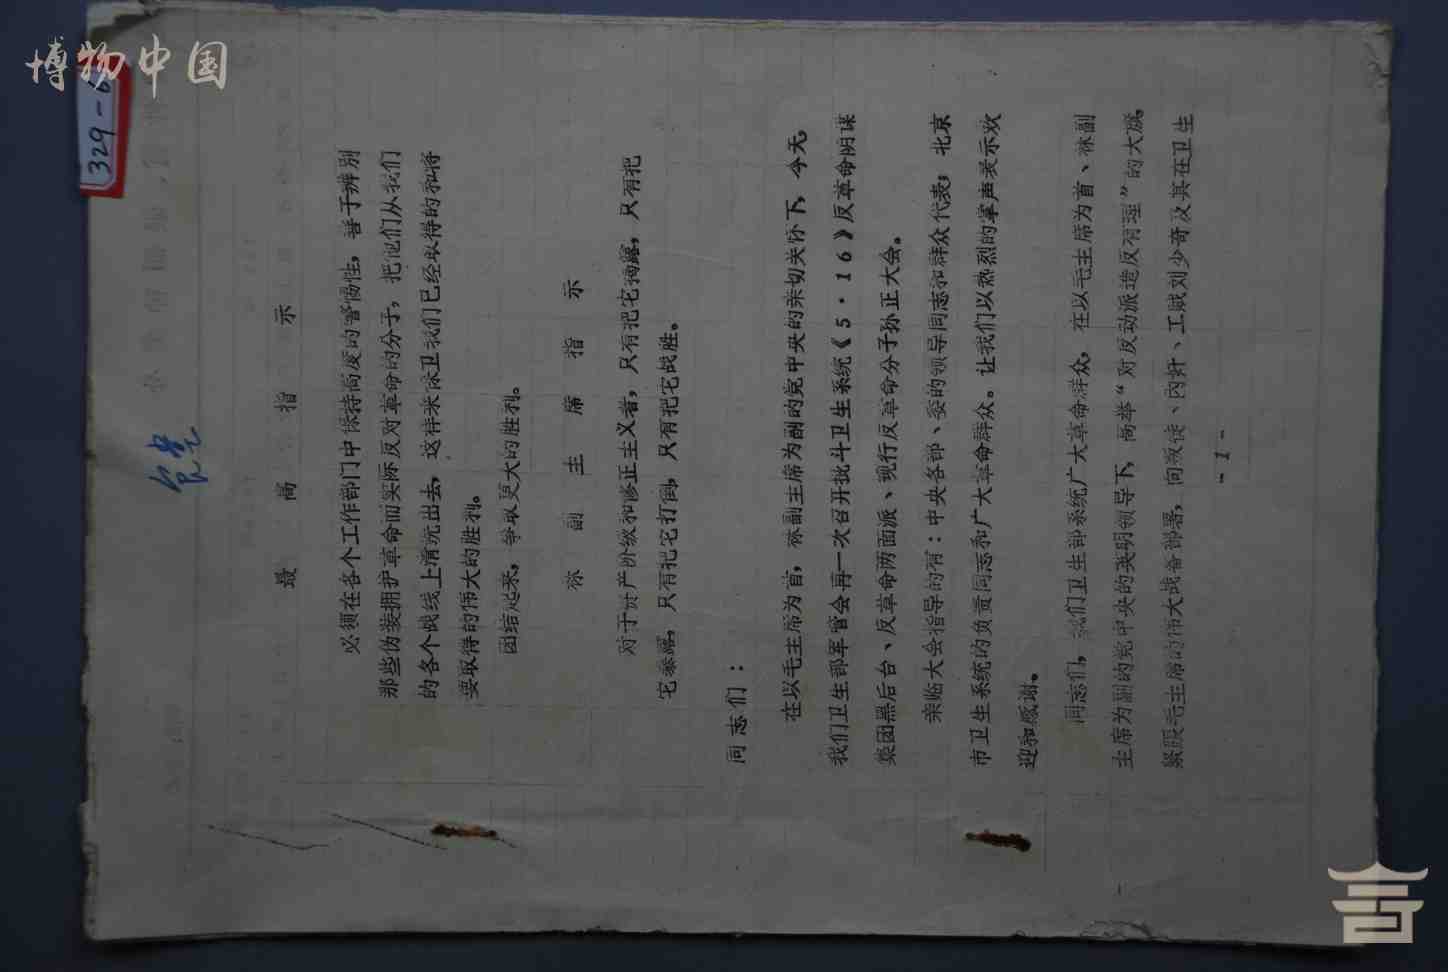 博物中国
329-6
最高指示
必须在各个工作部门中保持高度的警惕性，善于辨别
那些伪装拥护革命而实际反对革命的分子，把他们从我们
的各个战线上清洗出去，这样来保卫我们已经取得的和将
要取得的伟大的胜利。
团结起来，争取更大的胜利。
林副主席指示
对于资产阶级和修正主义者，只有把它揭露，只有把
它暴露，只有把它打倒，只有把它战胜。
同志们：
在以毛主席为首，林副主席为副的党中央的亲切关怀下，今天，
我们卫生部军管会再一次召开批斗卫生系统《5·16》反革命阴谋
集团黑后台、反革命两面派、现行反革命分子孙正大会。
亲临大会指导的有：中央各部、委的领导同志和群众代表；北京
市卫生系统的负责同志和广大革命群众。让我们以热烈的掌声表示欢
迎和感谢。
同志们，我们卫生部系统广大革命群众，在以毛主席为首、林副
主席为副的党中央的英明领导下，高举“对反动派造反有理”的大旗，
紧跟毛主席的伟大战备部署，向叛徒、内奸、工贼刘少奇及其在卫生
-1-